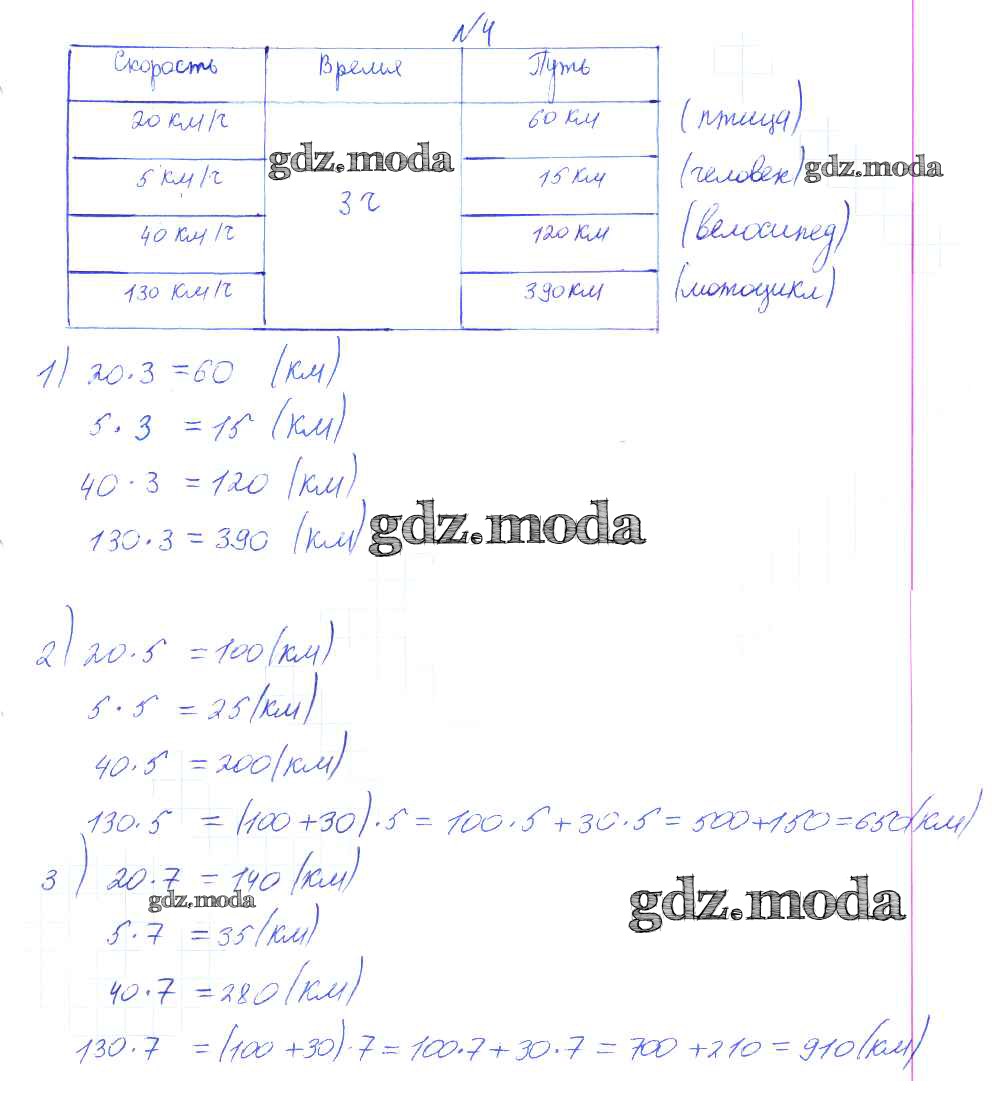 №4
Скорость Время Путь
20 км/ч 60 км (птица)
gdz.moda
5 км/ч 15 км (человек) gdz.moda
3 ч
40 км/ч 120 км (велосипед)
130 км/ч 390 км (мотоцикл)
1) 20·3 =60 (км)
5·3 =15 (км)
40·3 =120 (км)
130·3 =390 (км) gdz.moda
2) 20·5 =100 (км)
5·5 =25 (км)
40·5 =200 (км)
130·5 =(100+30)·5=100·5+30·5=500+150=650 (км)
3) 20·7 =140 (км)
gdz.moda gdz.moda
5·7 =35 (км)
40·7 =280 (км)
130·7 =(100+30)·7=100·7+30·7=700+210=910 (км)